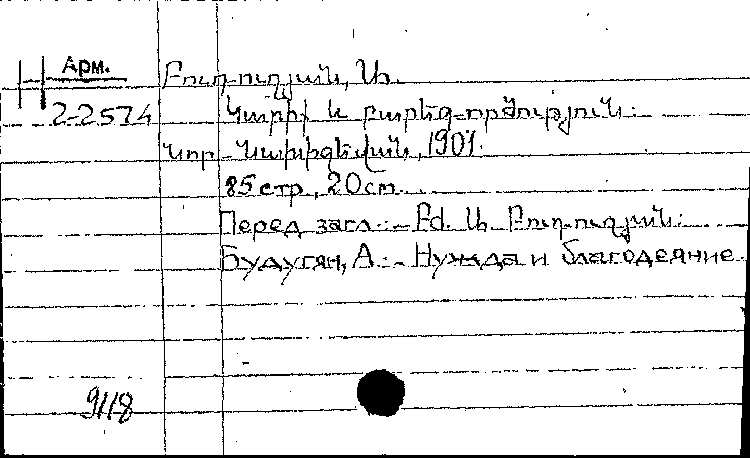 Арм.
2-2574
Բուդուղյան, Ա.
Կարիք և բարեգործություն:
Նոր-Նախիջևան, 1907.
85 стр., 20 cm.
Перед загл.: Բժ. Ա. Բուդուղյան:
Будугян, А.- Нужда и благодеяние.
9118